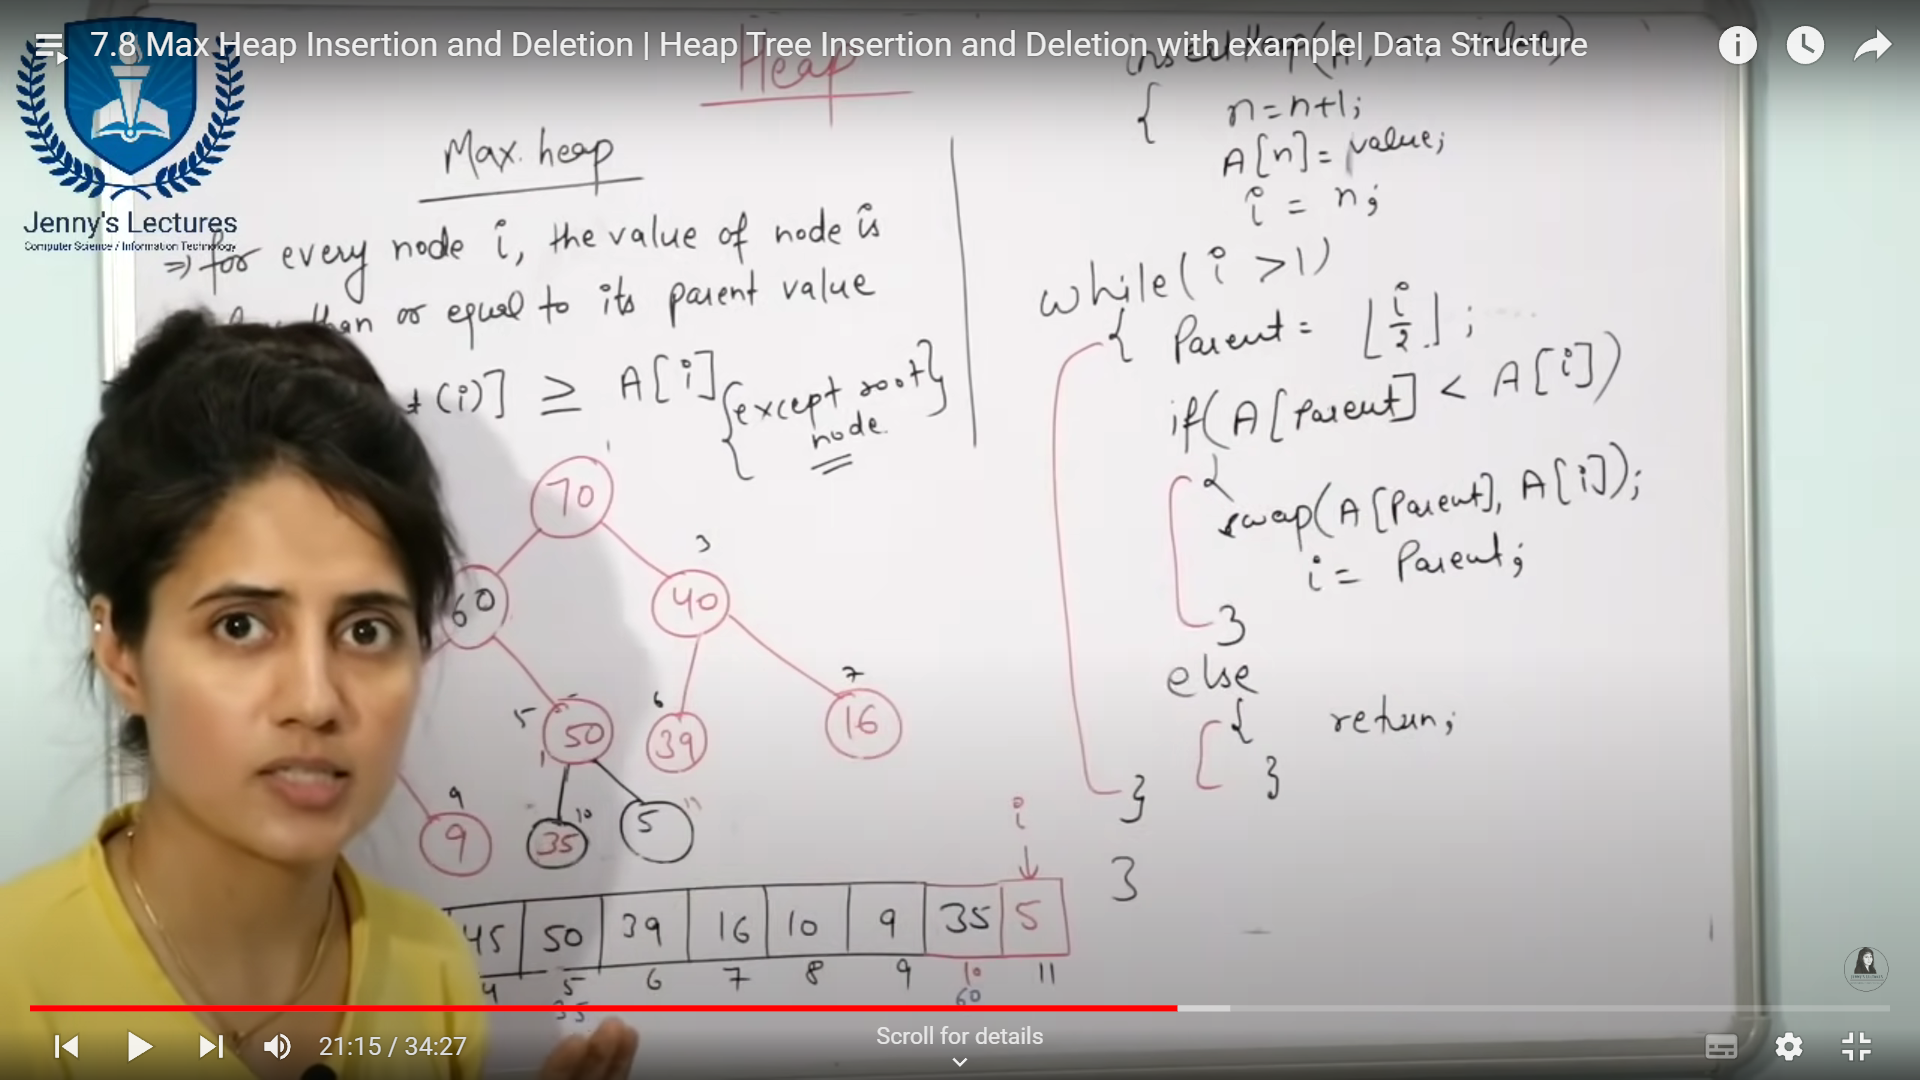 7.8 Max Heap Insertion and Deletion | Heap Tree Insertion and Deletion with example| Data Structure
Jenny's Lectures
Computer Science / Information Technology
Heap
Max. heap
⇒ for every node i, the value of node is
than or equal to its parent value
(i)] ≥ A[i] {except root}
node
1
70
60
3
40
5
50
6
39
7
16
9
9
10
35
11
5
i
45 50 39 16 10 9 35 5
4 5 6 7 8 9 10 11
35 60
{ n=n+1;
A[n] = value;
i = n;
while( i >1)
{ Parent = ⌊i/2⌋;
if(A[Parent] < A[i])
{
swap(A[Parent], A[i]);
i = Parent;
}
else
{ return;
}
}
}
21:15 / 34:27
Scroll for details